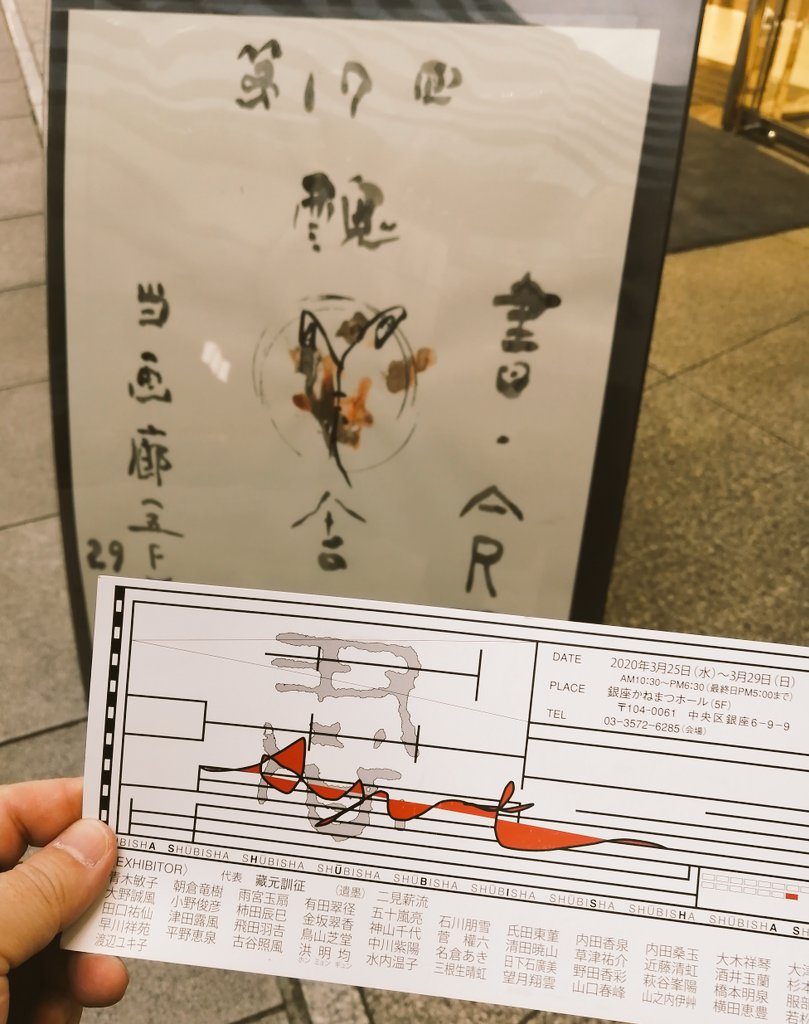 第17回
書・
舎
当画廊
29
DATE 2020年3月25日(水)〜3月29日(日)
AM10:30〜PM6:30(最終日PM5:00まで)
PLACE 銀座かねまつホール(5F)
〒104-0061 中央区銀座6-9-9
TEL 03-3572-6285(会場)
SHŪBISHA SHŪBISHA SHŪBISHA
EXHIBITOR〉 代表 藏元訓征 (遺墨) 二見薪流
青木敏子 朝倉竜樹 雨宮玉扇 有田翠径 五十嵐亮 石川朋雪 氏田東菫 内田香泉 内田桑玉 大木祥琴
大野誠風 小野俊彦 柿田辰巳 金坂翠香 神山千代 菅 權六 清田暁山 草津祐介 近藤清虹 酒井玉蘭
田口祐仙 津田露風 飛田羽吉 鳥山芝堂 中川紫陽 名倉あき 日下石廣美 野田香彩 萩谷峯陽 橋本明泉
早川祥苑 平野恵泉 古谷照風 洪 明均 水内温子 三根生晴虹 望月翔雲 山口春峰 山之内伊艸 横田恵豊
渡辺ユキ子 ホン ミョン ギュン